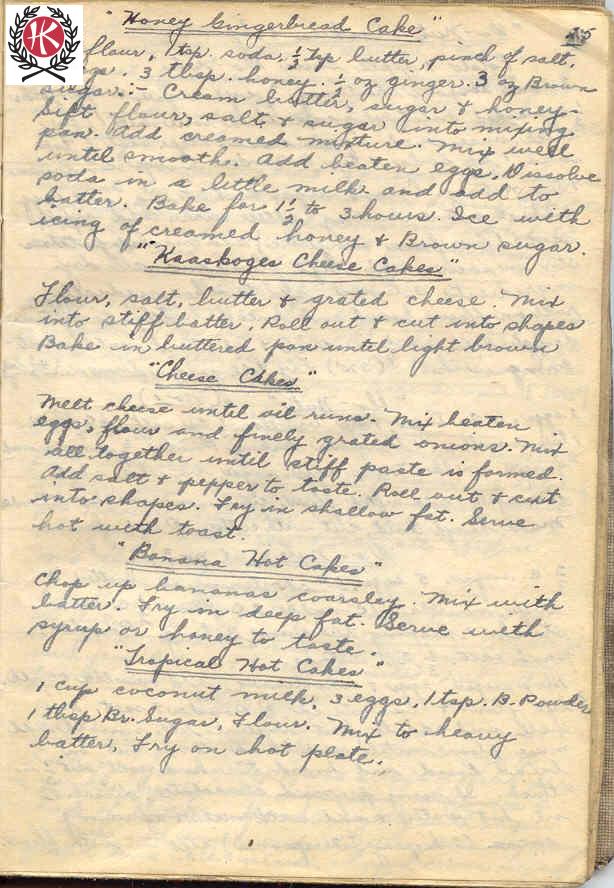 "Honey Gingerbread Cake"
25
flour, 1 tsp. soda, 1/2 tsp butter, pinch of salt.
3 tbsp. honey. 1/2 oz ginger. 3 oz Brown
sugar. :- Cream butter, sugar & honey-
Sift flour, salt & sugar into mixing
pan. Add creamed mixture. Mix well
until smooth. Add beaten eggs. Dissolve
soda in a little milk and add to
batter. Bake for 1 1/2 to 3 hours. Ice with
icing of creamed honey & Brown sugar.
"Kaaskoges Cheese Cakes"
Flour, salt, butter & grated cheese. Mix
into stiff batter. Roll out & cut into shapes
Bake in buttered pan until light brown
"Cheese Cakes"
Melt cheese until oil runs. Mix beaten
eggs, flour and finely grated onions. Mix
all together until stiff paste is formed.
Add salt & pepper to taste. Roll out & cut
into shapes. Fry in shallow fat. Serve
hot with toast.
"Banana Hot Cakes"
Chop up bananas coarsley. Mix with
batter. Fry in deep fat. Serve with
syrup or honey to taste.
"Tropical Hot Cakes"
1 cup coconut milk, 3 eggs, 1 tsp. B. Powder
1 tbsp Br. Sugar, Flour. Mix to heavy
batter, Fry on hot plate.
HK